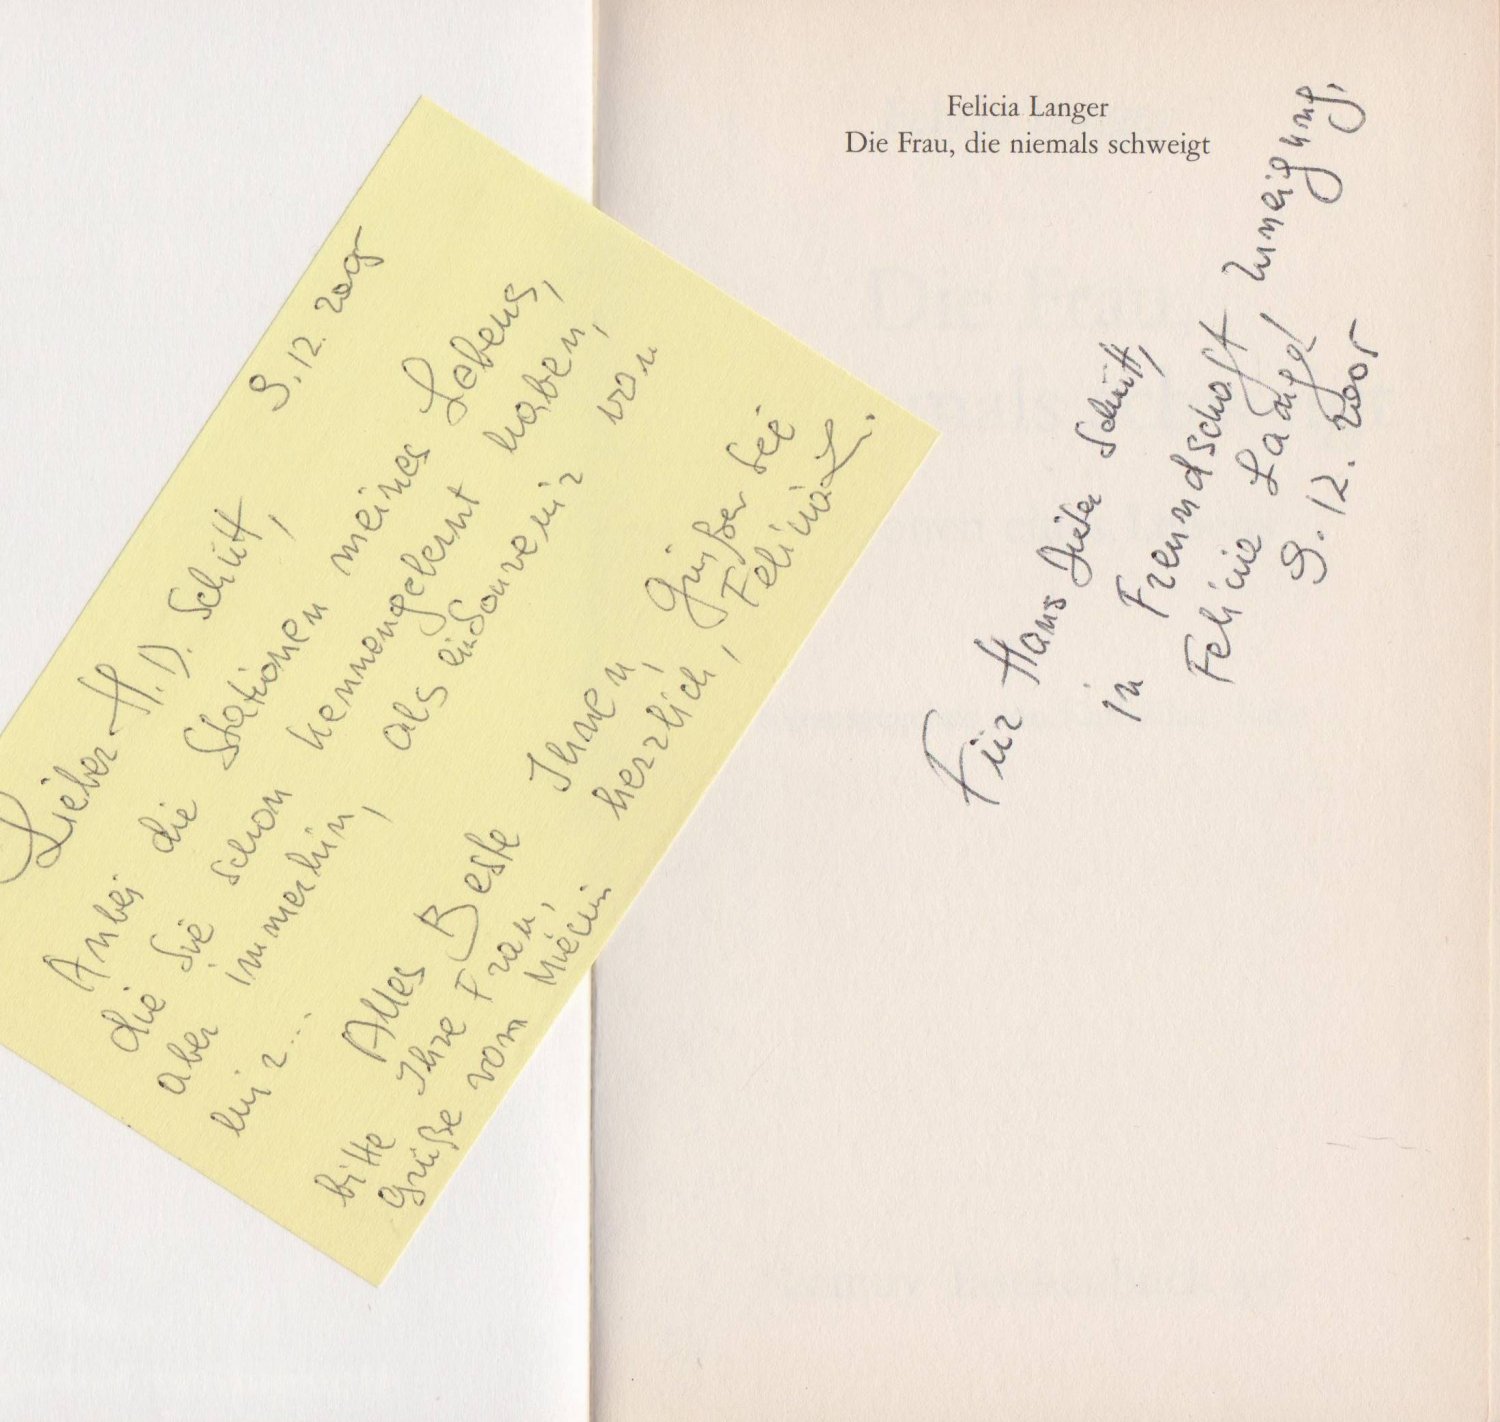 9.12.2005
Lieber H.D. Schütt,
Anbei die Stationen meines Lebens,
die Sie schon kennengelernt haben,
aber immerhin, als ein Souvenir von
mir...
Alles Beste Ihnen, Grüßen Sie
bitte Ihre Frau, herzlich, Felicia L.
Grüße vom Mieciu
Felicia Langer
Die Frau, die niemals schweigt
Für Hans Dieter Schütt,
in Freundschaft, Zuneigung,
Felicia Langer
9.12.2005